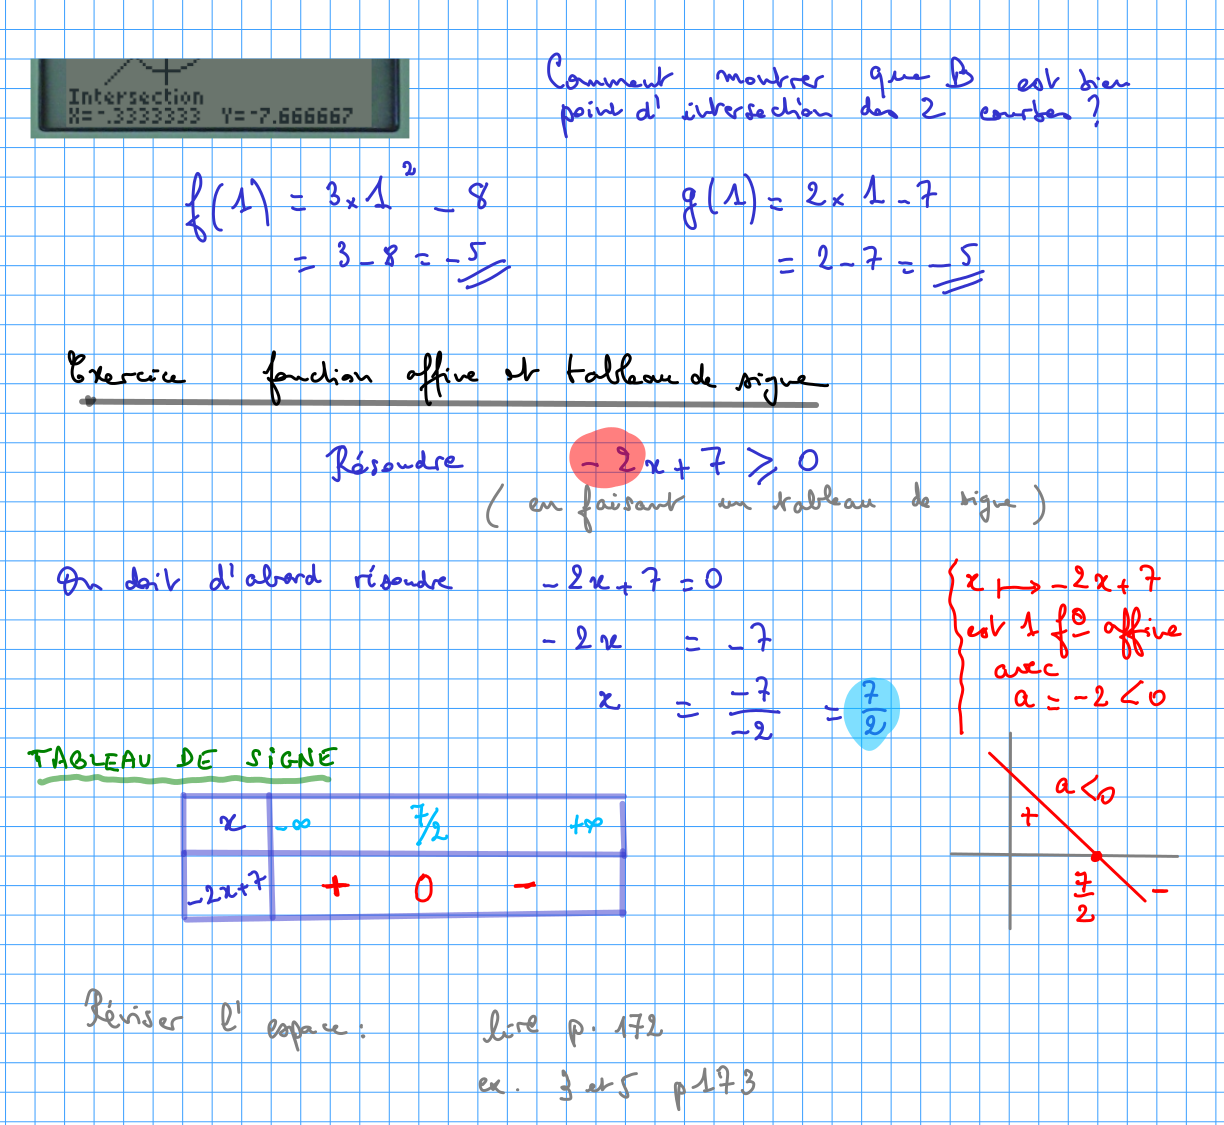 Intersection
X=-.3333333 Y=-7.666667
Comment montrer que B est bien
point d'intersection des 2 courbes ?
f(1) = 3×1² - 8
= 3 - 8 = -5
g(1) = 2×1 - 7
= 2 - 7 = -5
Exercice fonction affine et tableau de signe
Résoudre -2x + 7 ⩾ 0
(en faisant un tableau de signe)
On doit d'abord résoudre -2x + 7 = 0
-2x = -7
x = -7/-2 = 7/2
x ⟼ -2x + 7
est 1 f° affine
avec
a = -2 < 0
TABLEAU DE SIGNE
x -∞ 7/2 +∞
-2x+7 + 0 -
a<0
+
7/2
-
Réviser l'espace : lire p. 172
ex. 3 et 5 p 173